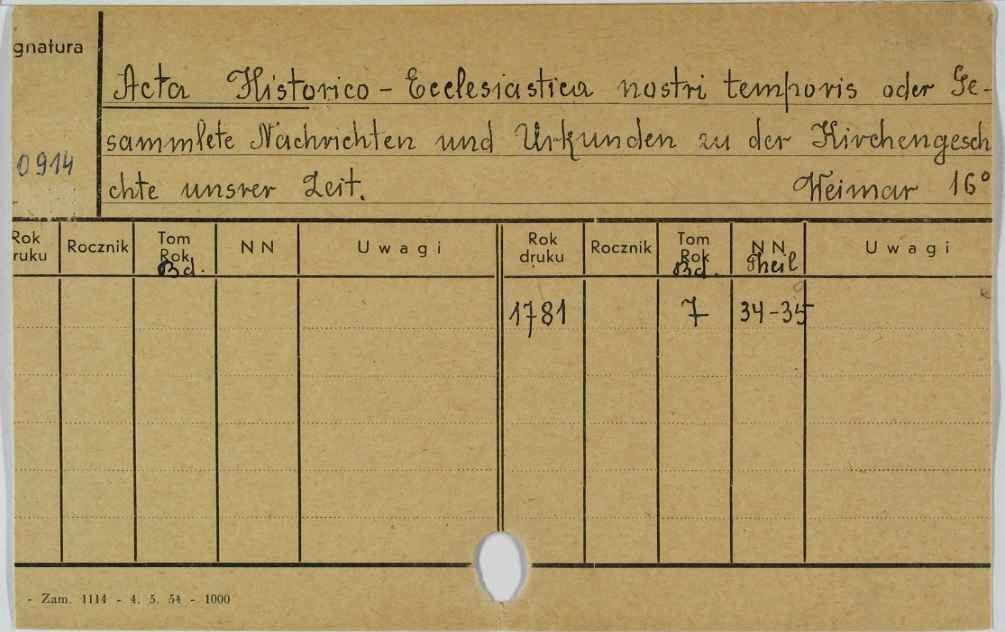 gnatura
Acta Historico - Ecclesiastica nostri temporis oder Ge-
sammlete Nachrichten und Urkunden zu der Kirchengesch
0914
chte unsrer Zeit. Weimar 16°
Rok ruku Rocznik Tom Rok Bd. N N Uwagi Rok druku Rocznik Tom Rok Bd. N N Theil Uwagi
1781 7 34-35
- Zam. 1114 - 4. 5. 54 - 1000